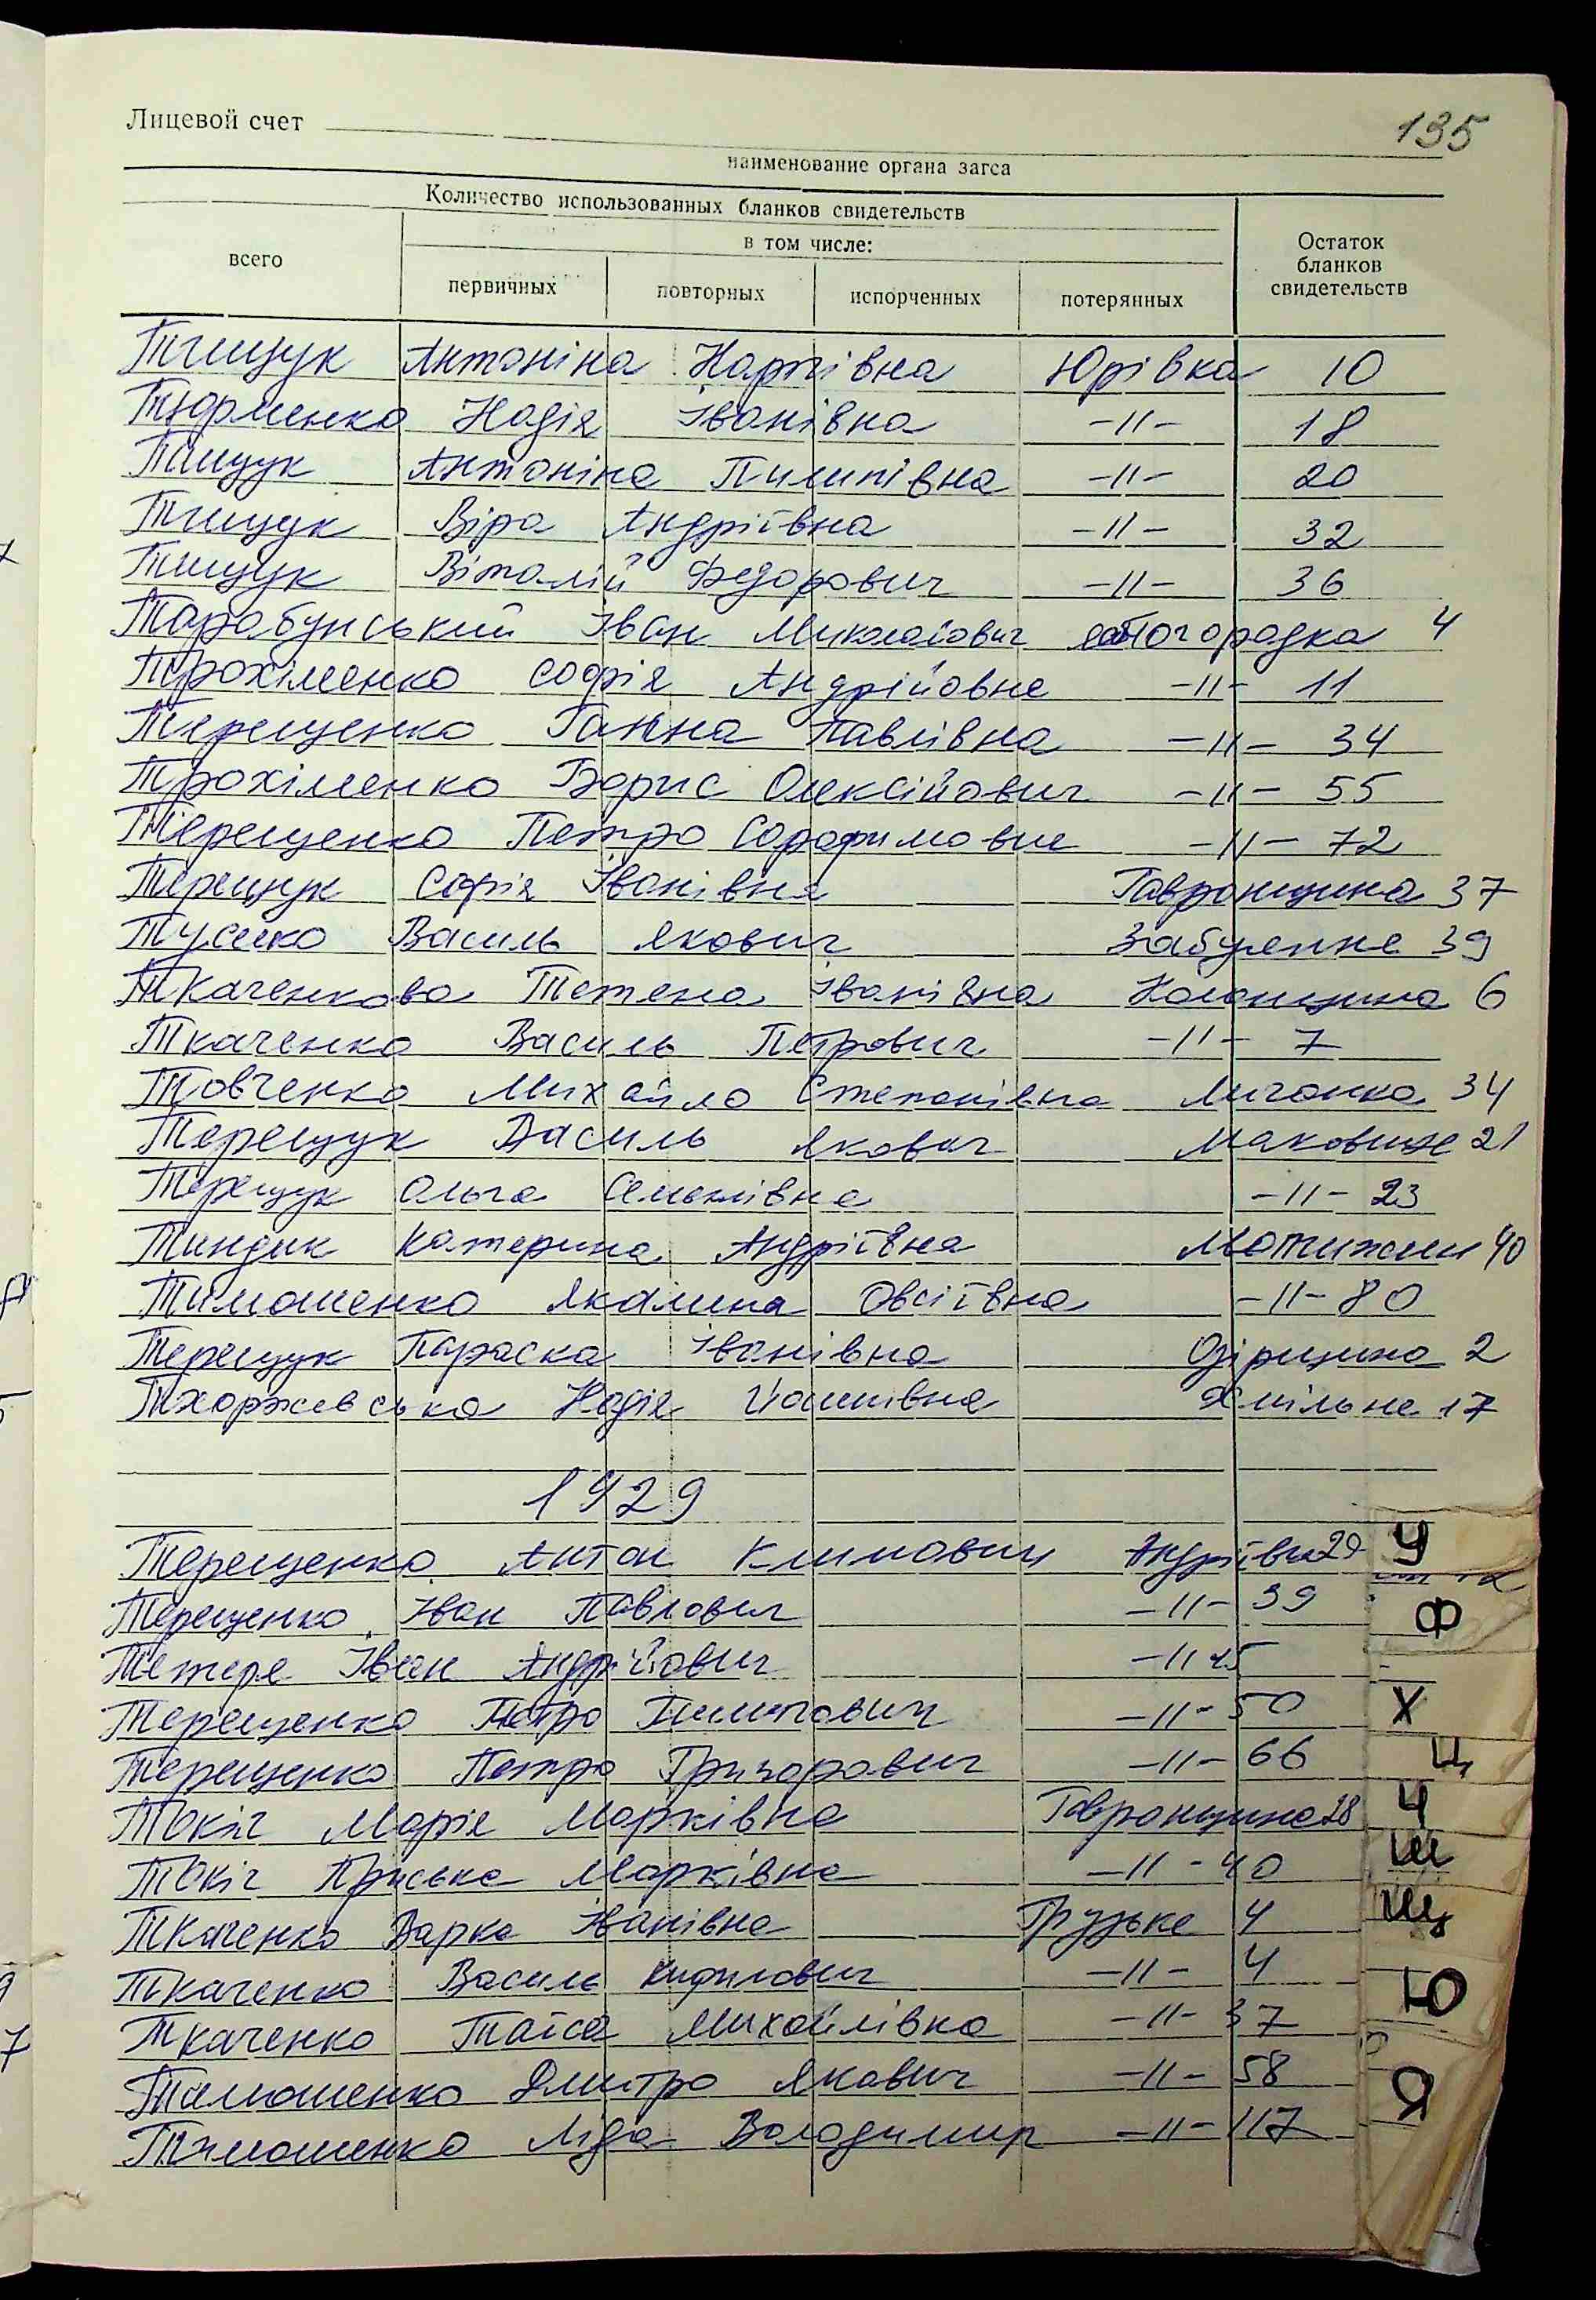 135
Лицевой счет
наименование органа загса
Количество использованных бланков свидетельств
в том числе:
всего первичных повторных испорченных потерянных Остаток бланков свидетельств
Тищук Антоніна Карпівна Юрівка 10
Тюрменко Надія Іванівна -11- 18
Тищук Антоніна Пилипівна -11- 20
Тищук Віра Андріївна -11- 32
Тищук Віталій Федорович -11- 36
Тарабунський Іван Миколайович Білогородка 4
Трохіменко Софія Андрійовна -11- 11
Терещенко Ганна Павлівна -11- 34
Трохіменко Борис Олексійович -11- 55
Терещенко Петро -11- 72
Терещук Софія Іванівна Гавронщина 37
Василь Якович Забуяння 39
Ткаченкова Тетяна Іванівна Колонщина 6
Ткаченко Василь Петрович -11- 7
Товченко Михайло Степанівна Личанка 34
Терещук Василь Якович Маковище 21
Терещук Ольга -11- 23
Тиндик Катерина Андріївна Мотижин 40
Тимошенко Якилина Овсіївна -11- 80
Терещук Параска Іванівна 2
Тхоржевська Надія Йосипівна Хмільна 17
1929
Терещенко Антон Климович Андріївка 29
Терещенко Іван Павлович -11- 39
Тетеря Іван Андрійович -11 45
Терещенко Петро Пилипович -11- 50
Терещенко Петро Григорович -11- 66
Токіч Марія Марківна Гавронщина 28
Токіч Пріська Марківна -11- 40
Ткаченко Варка Іванівна Грузьке 4
Ткаченко Василь Кирилович -11- 4
Ткаченко Таїса Михайлівна -11- 37
Тимошенко Дмитро Якович -11- 58
Тимошенко Ліда Володимир -11- 117
У
Ф
Х
Ц
Ч
Ш
Щ
Ю
Я